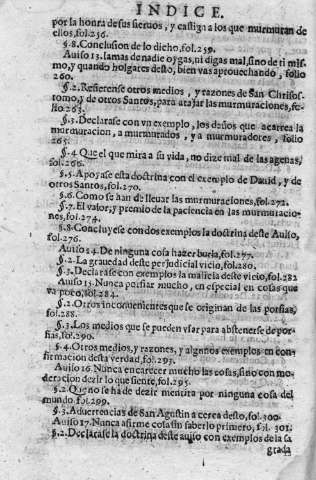 INDICE.
por la honra de sus sieruos, y castiga a los que murmuran de
ellos, fol. 256.
§. 8. Conclusion de lo dicho, fol. 259.
Auiso 13. Iamas de nadie oygas, ni digas mal, sino de ti mis-
mo, y quando holgares desto, bien vas aprouechando, folio
260.
§. 2. Refierense otros medios, y razones de San Chrisos-
tomo, y de otros Santos, para atajar las murmuraciones, fo-
lio 263.
§. 3. Declarase con vn exemplo, los daños que acarrea la
murmuracion, a murmurados, y a murmuradores, folio
265.
§. 4. Que el que mira a su vida, no dize mal de las agenas,
fol. 266.
§. 5. Apoyase esta doctrina con el exemplo de Dauid, y de
otros Santos, fol. 270.
§. 6. Como se han de lleuar las murmuraciones, fol. 272.
§. 7. El valor, y premio de la paciencia en las murmuracio-
nes, fol. 274.
§. 8. Concluyese con dos exemplos la doctrina deste Auiso,
fol. 276.
Auiso 14. De ninguna cosa hazer burla, fol. 277.
§. 2. La grauedad deste perjudicial vicio, fol. 280.
§. 3. Declarase con exemplos la malicia deste vicio, fol. 282
Auiso 15. Nunca porfiar mucho, en especial en cosas que
va poco, fol. 284.
§. 2. Otros inconuenientes que se originan de las porfias,
fol. 288.
§. 3. Los medios que se pueden vsar para abstenerse de por-
fias, fol. 290.
§. 4. Otros medios, y razones, y algunos exemplos en con-
firmacion desta verdad, fol. 293.
Auiso 16. Nunca encarecer mucho las cosas, sino con mo-
deracion dezir lo que siente, fol. 295.
§. 2. Que no se ha de dezir mentira por ninguna cosa del
mundo. fol. 299.
§. 3. Aduertencias de San Agustin a cerca desto, fol. 300.
Auiso 17. Nunca afirme cosa sin saberlo primero, fol. 301.
§. 2. Declarase la doctrina deste auiso con exemplos de la sa
grada